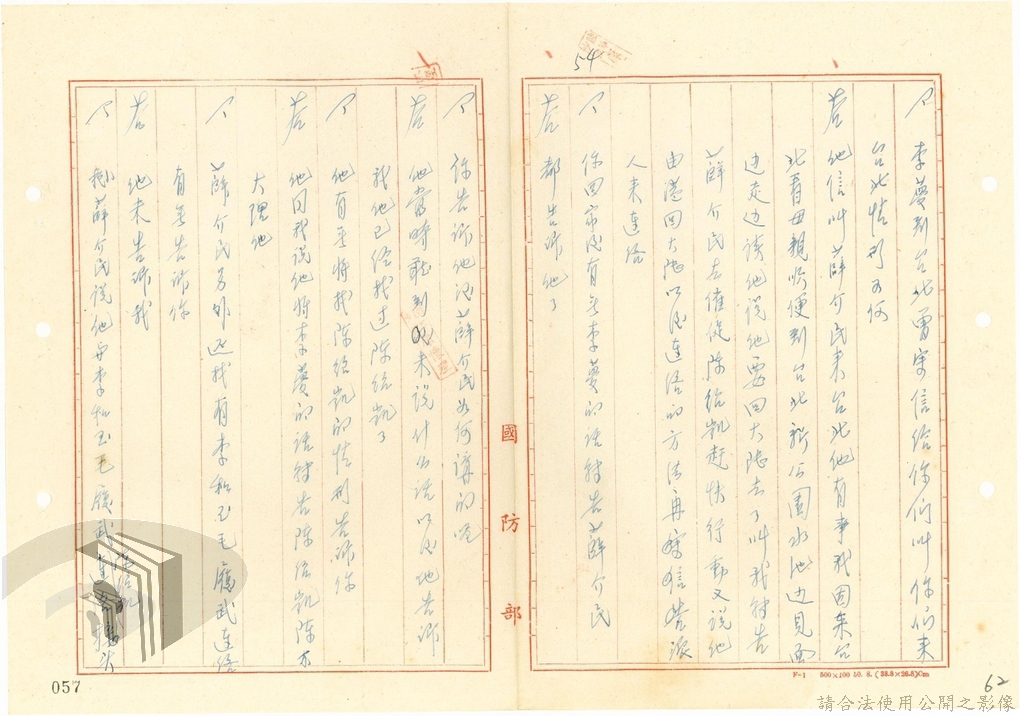 54
問 李蔓到台北曾寄信給你們叫你們來
台北情形如何
答 他信叫薛介民來台北他有事我因來台
北看母親順便到台北新公園水池边見面
边走边談他說他要回大陸去了叫我轉告
薛介民去催促陳紹凱赶快行動又說他
由港回大陸以后連絡的方法再寄信告派
人来連络
問 你回家后有無李蔓的話轉告薛介民
答 都告訴他了
國防部
F-1 500×100 50. 8. (38.8×26.8)Cm
問 你告訴他后薛介民如何講的呢
答 他當時聽到後未說什么話以后他告訴
我他已经找过陳紹凱了
問 他有無将找陳紹凱的情形告訴你
答 他同我說他將李蔓的話轉告陳紹凱陳不
大理他
問 薛介民另外还找有李和玉毛履武連络
有無告訴你
答 他未告訴我
問 據薛介民說他与李和玉毛履武陳紹凱連络接头
057
62
請合法使用公開之影像